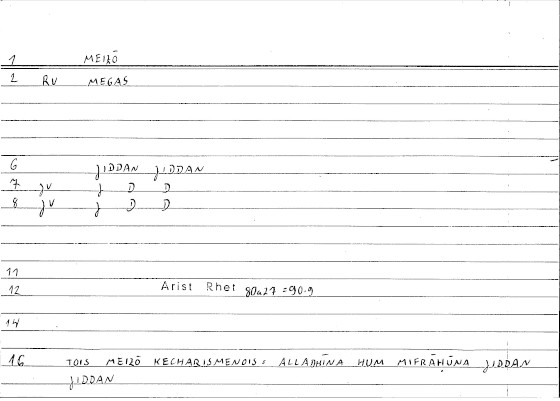 1 MEIZŌ
2 RV MEGAS
6 ǧIDDAN ǧIDDAN
7 ǧV ǧ D D
8 ǧV ǧ D D
11
12 Arist Rhet 80a27 =90.9
14
16 TOIS MEIZŌ KECHARISMENOIS = ALLADHĪNA HUM MIFRĀḤŪNA ǧIDDAN
ǧIDDAN